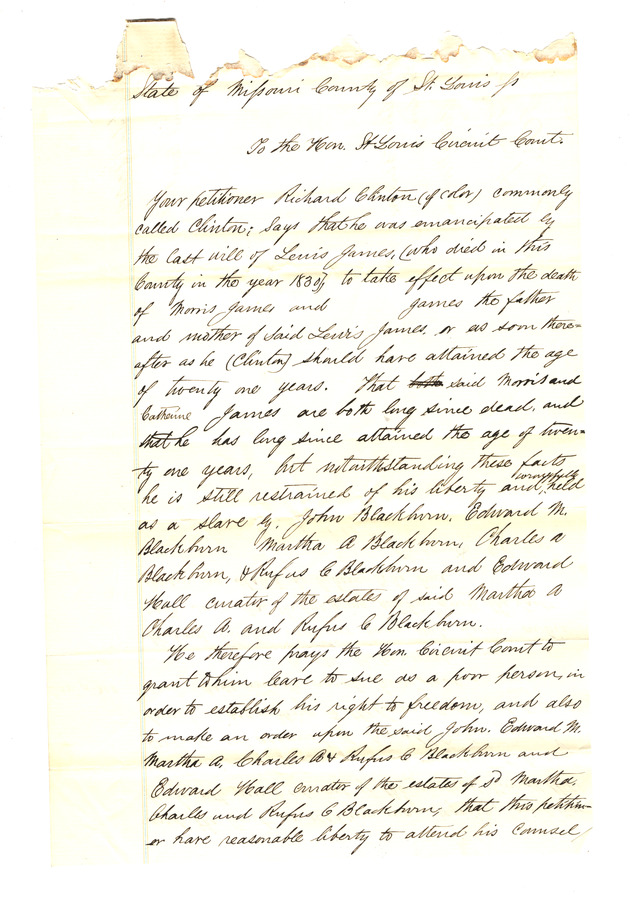 State of Missouri County of St. Louis ss
To the Hon. St Louis Circuit Court.
Your petitioner Richard Clinton (of color) commonly
called Clinton; Says that he was emancipated by
the last will of Lewis James, (who died in this
County in the year 1830), to take effect upon the death
of Morris James and James the father
and mother of said Lewis James. or as soon there=
after as he (Clinton) should have attained the age
of twenty one years. That both said Morris and
Catherine James are both long since dead, and
that he has long since attained the age of twen=
ty one years, but notwithstanding these facts
he is still restrained of his liberty and wrongfully held
as a slave by. John Blackburn, Edward M.
Blackburn Martha A Blackburn, Charles A
Blackburn, & Rufus C Blackburn and Edward
Hall curator of the estates of said Martha A
Charles A. and Rufus C Blackburn.
He therefore prays the Hon Circuit Court to
grant to him leave to sue as a poor person, in
order to establish his right to freedom, and also
to make an order upon the said John. Edward M.
Martha A, Charles A & Rufus C Blackburn and
Edward Hall curator of the estates of sd Martha,
Charles and Rufus C Blackburn, that this petition=
er have reasonable liberty to attend his counsel,